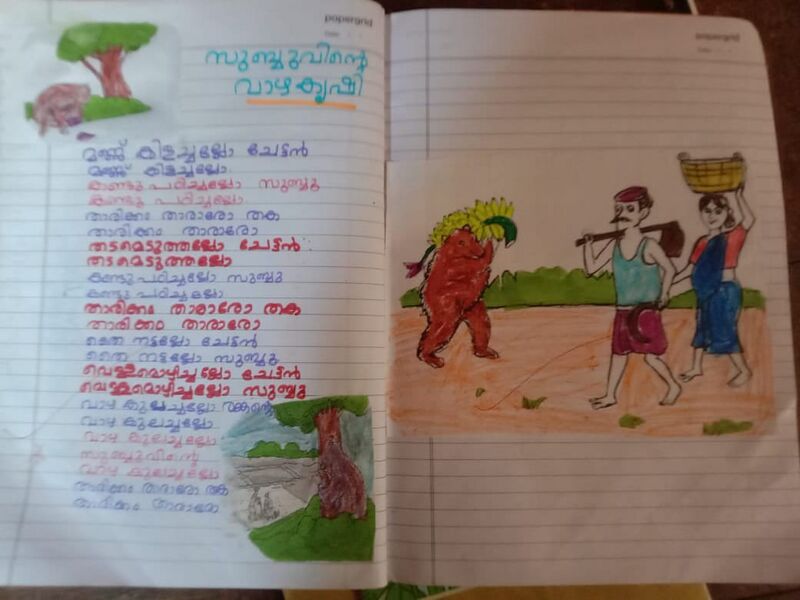 papergrid
Date: / /
സുബ്ബുവിന്റെ
വാഴകൃഷി
മണ്ണ് കിളച്ചല്ലോ ചേട്ടൻ
മണ്ണ് കിളച്ചല്ലോ
കണ്ടുപഠിച്ചല്ലോ സുബ്ബു
കണ്ടു പഠിച്ചല്ലോ
താരിക്കം താരാരോ തക
താരിക്കം താരാരോ
തടമെടുത്തല്ലോ ചേട്ടൻ
തടമെടുത്തല്ലോ
കണ്ടുപഠിച്ചല്ലോ സുബ്ബു
കണ്ടു പഠിച്ചല്ലോ
താരിക്കം താരാരോ തക
താരിക്കം താരാരോ
തൈ നട്ടല്ലോ ചേട്ടൻ
തൈ നട്ടല്ലോ സുബ്ബു
വെള്ളമൊഴിച്ചല്ലോ ചേട്ടൻ
വെള്ളമൊഴിച്ചല്ലോ സുബ്ബു
വാഴ കുലച്ചല്ലോ
വാഴ കുലച്ചല്ലോ
വാഴ കുലച്ചല്ലോ
സുബ്ബുവിന്റെ
വാഴ കുലച്ചല്ലോ
താരിക്കം താരാരോ തക
താരിക്കം താരാരോ
papergrid
Date: / /